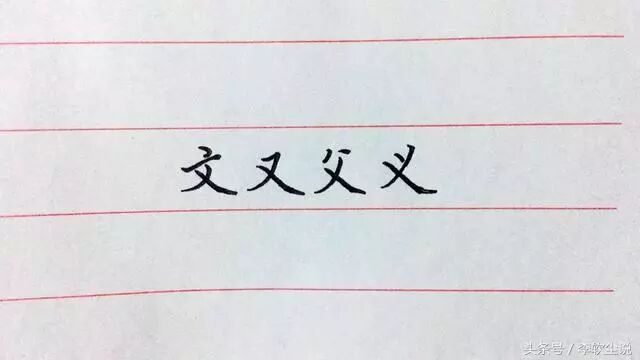 文又父义
头条号 / 李软尘说